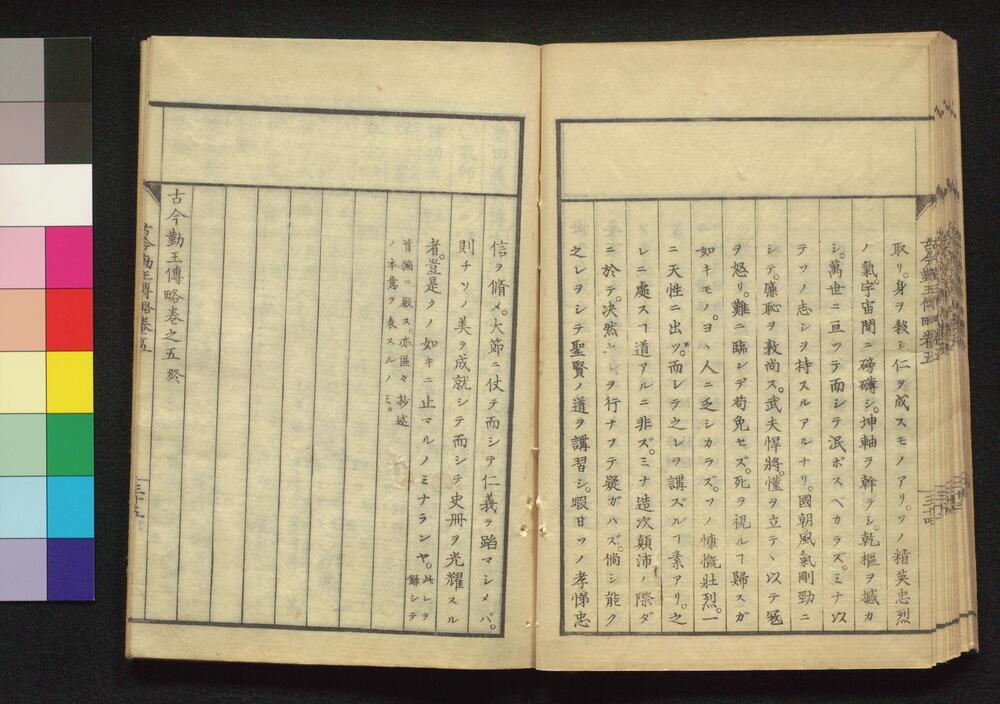 取リ。身ヲ殺シ仁ヲ成スモノアリ。ソノ精英忠烈
ノ氣。宇宙間ニ磅礴シ。坤軸ヲ斡ラシ。乾樞ヲ撼カ
シ。萬世ニ亘ツテ而シテ泯ボスベカラズ。ミナ以
テソノ志シヲ持スルアルナリ。國朝風氣剛勁ニ
シテ。廉恥ヲ敦尚ス。武夫悍將。慬ヲ立テヽ以テ冦
ヲ怒リ。難ニ臨ンデ苟免セズ。死ヲ視ルヿ歸スガ
如キモノ。ヨヽ人ニ乏シカラズ。ソノ慷慨壯烈。一
ニ天性ニ出ヅ。而レテ之レヲ講ズルヿ素アリ。之
レニ處スヿ道アルニ非ズ。ミナ造次顛沛ノ際ダ
ニ於テ。决然之レヲ行ナフテ疑ガハズ。倘シ能ク
之レヲシテ聖賢ノ道ヲ講習シ。暇日ソノ孝悌忠
古今勤王傳略卷五
三十四
信ヲ脩メ。大節ニ仗テ而シテ仁義ヲ蹈マシメバ。
則チソノ美ヲ成就シテ而シテ史冊ヲ光耀スル
者。豈是クノ如キニ止マルノミナランヤ。此レヲ錄シテ
首簡ニ殿ス。亦區々抄述
ノ本意ヲ表スルノミ。
古今勤王傳略卷之五終
古今勤王傳略卷五
三十五